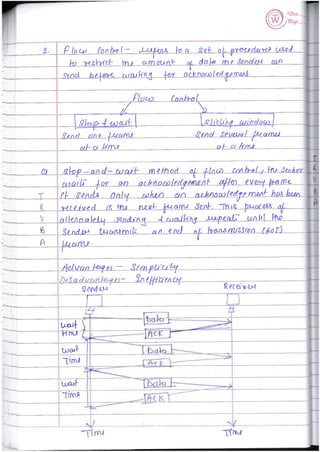 2. Flow Control - refers to a set of procedures used
to restrict the amount of data the sender can
send before waiting for acknowledgement.
Flow Control
Stop & wait
Sliding window
Send one frame
at a time
Send several frames
at a time
Stop-and-wait method of flow control, the sender
waits for an acknowledgement after every frame.
It sends only when an acknowledgement has been
received is the next frame sent. This process of
alternately sending & waiting repeats until the
Sender transmits an end of transmission (EOT)
frame.
Advantages - Simplicity
Disadvantages - Inefficiency
Sender
Receiver
wait
time
Data
ACK
wait
Time
Data
ACK
wait
Time
Data
ACK
Time
Time
T
R
U
B
A